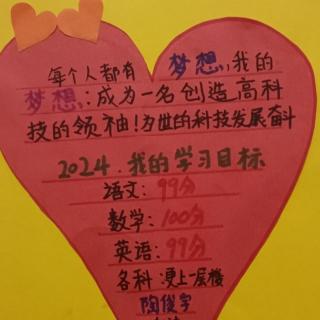 每个人都有梦想,我的
梦想,:成为一名创造高科
技的领袖!为世的科技发展奋斗
2024.我的学习目标
语文:99分
数学:100分
英语:99分
各科:更上一层楼
陶俊宇